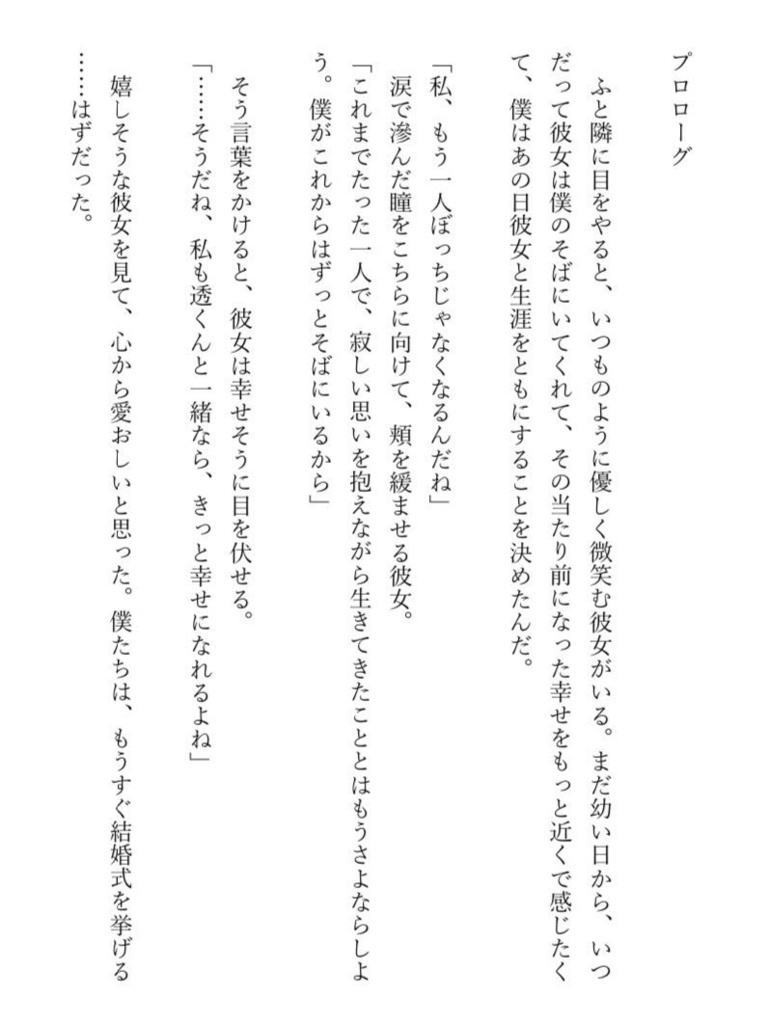 プロローグ
　ふと隣に目をやると、いつものように優しく微笑む彼女がいる。まだ幼い日から、いつ
だって彼女は僕のそばにいてくれて、その当たり前になった幸せをもっと近くで感じたく
て、僕はあの日彼女と生涯をともにすることを決めたんだ。
「私、もう一人ぼっちじゃなくなるんだね」
　涙で滲んだ瞳をこちらに向けて、頬を緩ませる彼女。
「これまでたった一人で、寂しい思いを抱えながら生きてきたこととはもうさよならしよ
う。僕がこれからはずっとそばにいるから」
　そう言葉をかけると、彼女は幸せそうに目を伏せる。
「……そうだね、私も透くんと一緒なら、きっと幸せになれるよね」
　嬉しそうな彼女を見て、心から愛おしいと思った。僕たちは、もうすぐ結婚式を挙げる
……はずだった。